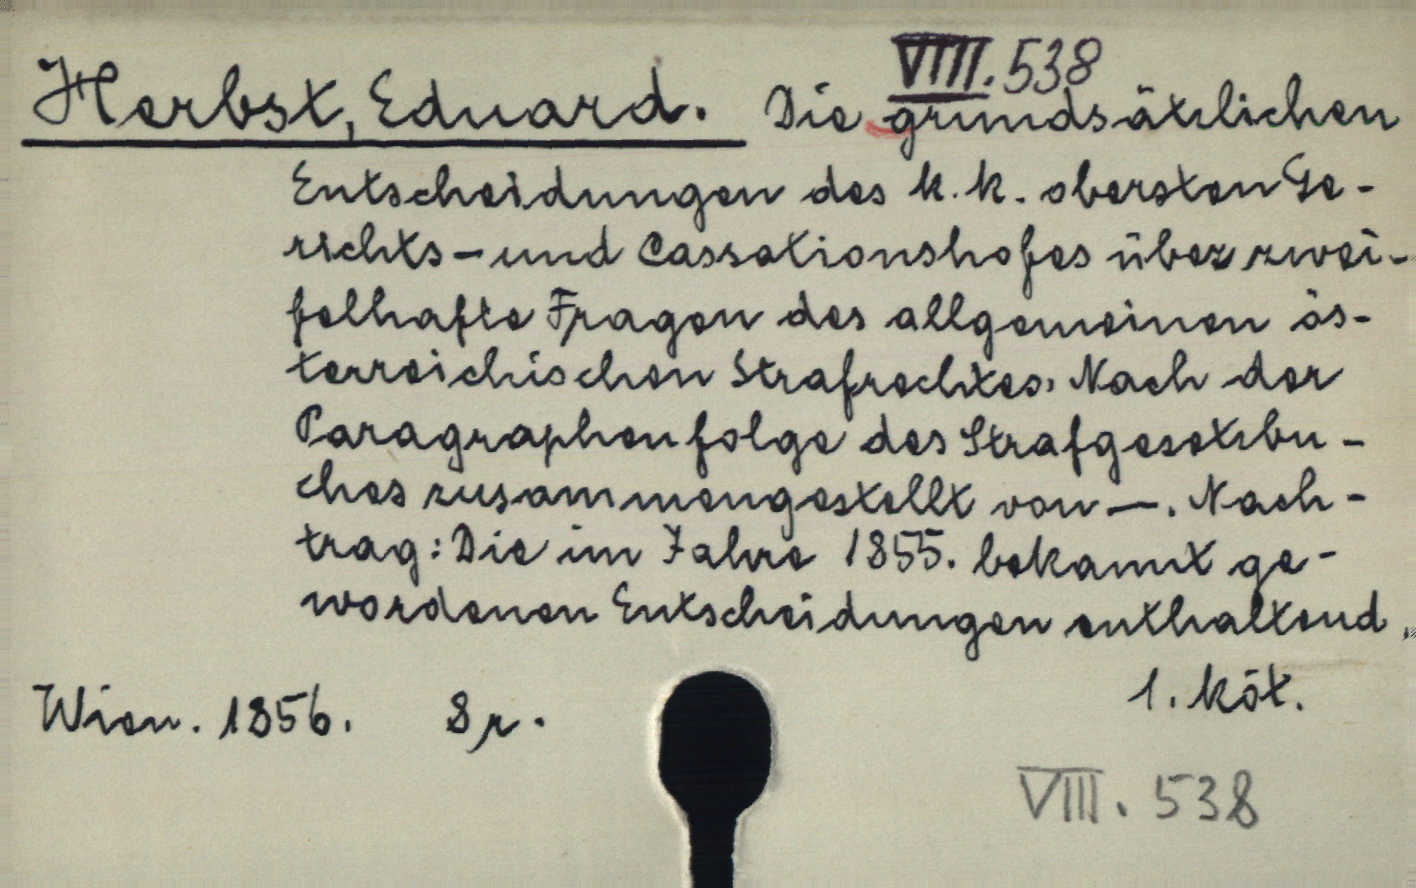 VIII. 538
Herbst, Eduard. Die grundsätzlichen
Entscheidungen des k. k. obersten Ge-
richts- und Cassationshofes über zwei-
felhafte Fragen des allgemeinen ös-
terreichischen Strafrechtes. Nach der
Paragraphenfolge des Strafgesetzbu-
ches zusammengestellt von —. Nach-
trag: Die im Jahre 1855. bekannt ge-
wordenen Entscheidungen enthaltend.
1. köt.
Wien. 1856. 8r.
VIII. 538